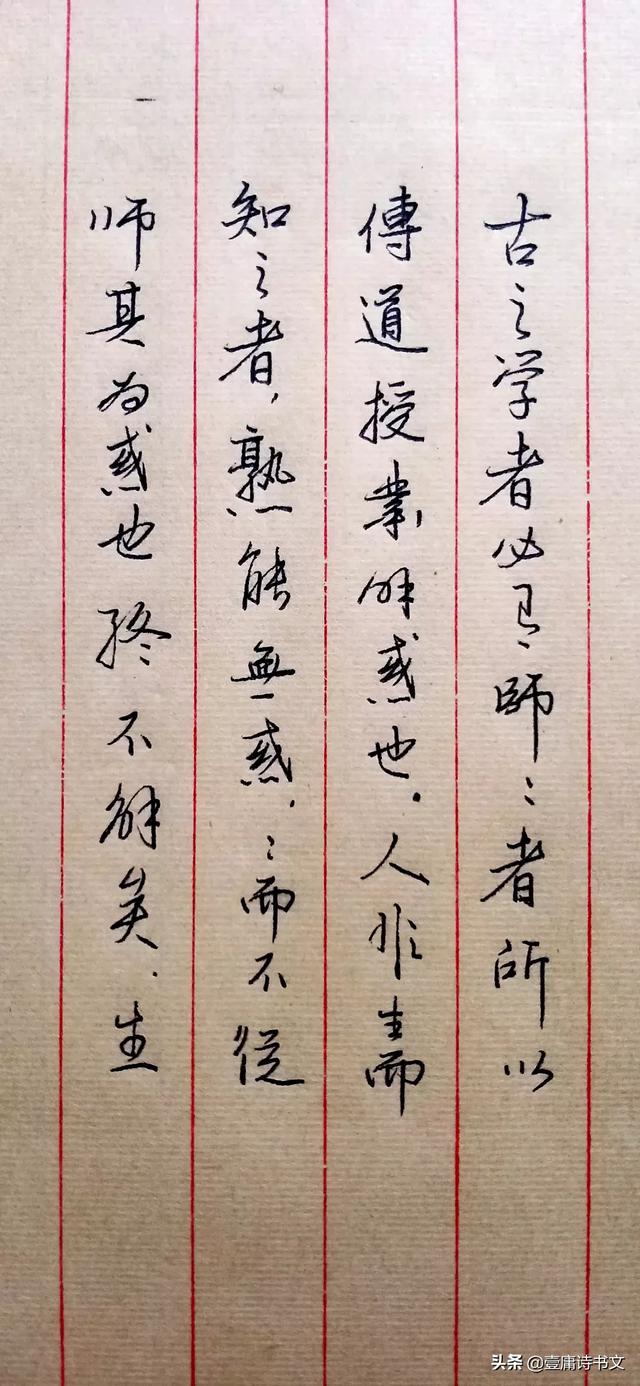 古之学者必有師〻者所以
傳道授業解惑也.人非生而
知之者,熟能無惑.〻而不從
师其为惑也终不解矣.生
头条@壹庸诗书文